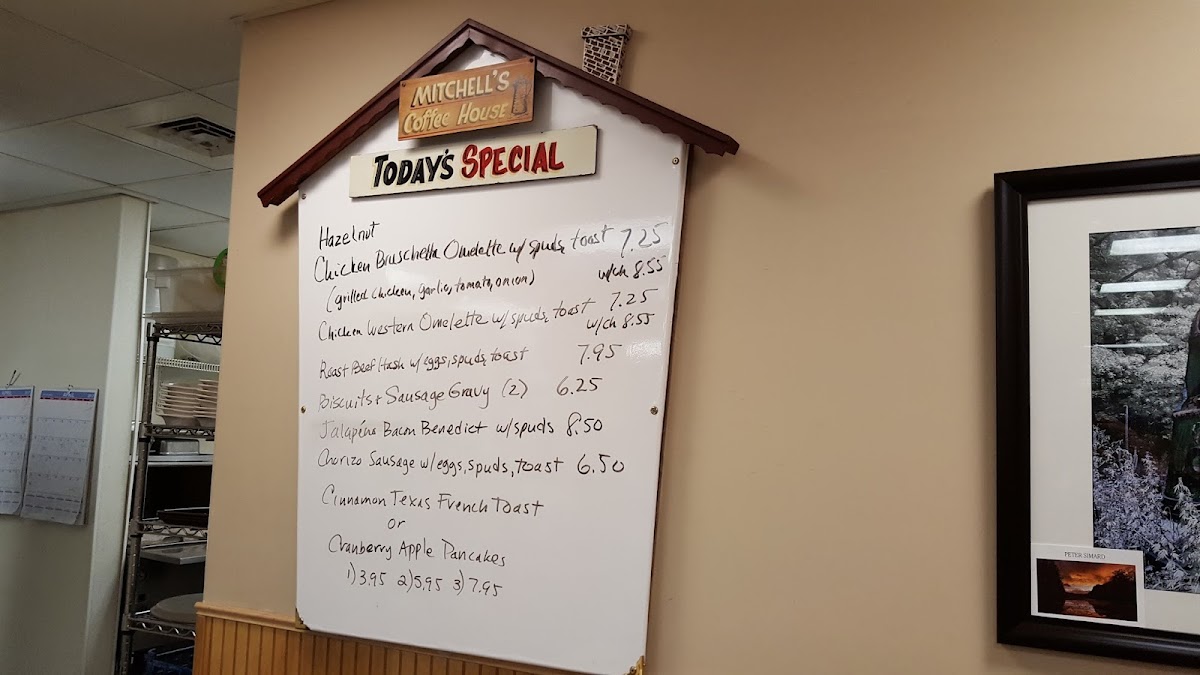 MITCHELL'S
Coffee House
TODAY'S SPECIAL
Hazelnut
Chicken Bruschetta Omelette w/ spuds, toast 7.25
(grilled chicken, garlic, tomato, onion) w/ch 8.55
Chicken Western Omelette w/ spuds, toast 7.25
w/ch 8.55
Roast Beef Hash w/ eggs, spuds, toast 7.95
Biscuits + Sausage Gravy (2) 6.25
Jalapéno Bacon Benedict w/spuds 8.50
Chorizo Sausage w/ eggs, spuds, toast 6.50
Cinnamon Texas French Toast
or
Cranberry Apple Pancakes
1) 3.95 2) 5.95 3) 7.95
PETER SIMARD